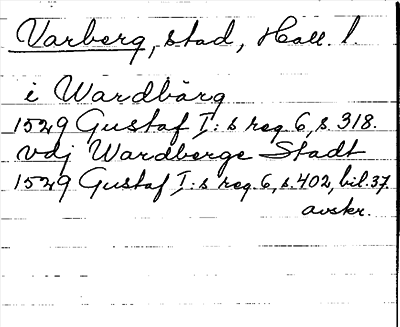 Varberg, stad, Hall. l.
i Wardbärg
1529 Gustaf I:s reg. 6, s. 318.
vdj Wardberge Stadt
1529 Gustaf I:s reg. 6, s. 402, bil. 37.
avskr.